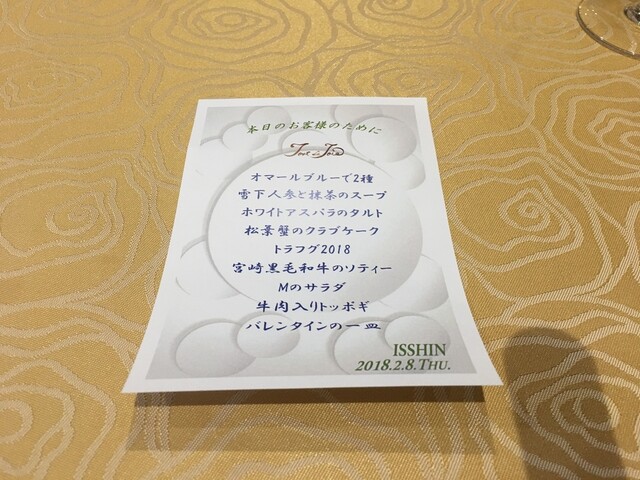 本日のお客様のために
オマールブルーで2種
雪下人参と抹茶のスープ
ホワイトアスパラのタルト
松葉蟹のクラブケーク
トラフグ2018
宮崎黒毛和牛のソティー
Mのサラダ
牛肉入りトッポギ
バレンタインの一皿
ISSHIN
2018.2.8.THU.